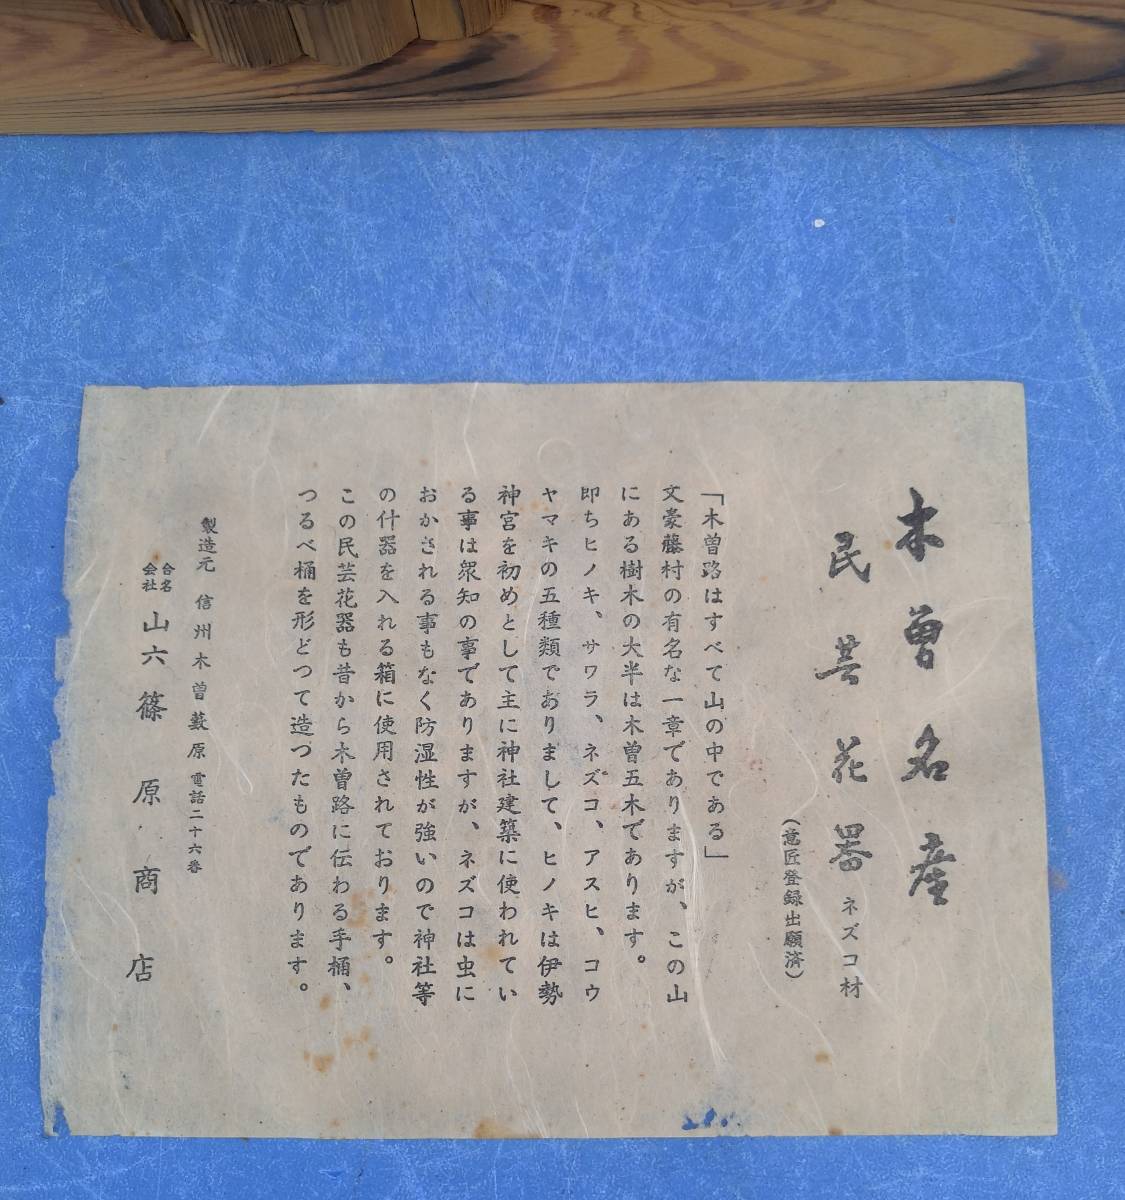 木曽名産
民芸花器 ネズコ材
(意匠登録出願済)
「木曽路はすべて山の中である」
文豪藤村の有名な一章でありますが、この山
にある樹木の大半は木曽五木であります。
即ちヒノキ、サワラ、ネズコ、アスヒ、コウ
ヤマキの五種類でおりまして、ヒノキは伊勢
神宮を初めとして主に神社建築に使われてい
る事は衆知の事でありますが、ネズコは虫に
おかされる事もなく防湿性が強いので神社等
の什器を入れる箱に使用されております。
この民芸花器も昔から木曽路に伝わる手桶、
つるべ桶を形どつて造つたものであります。
製造元 信州木曽薮原 電話二十六番
合名会社 山六篠原商店